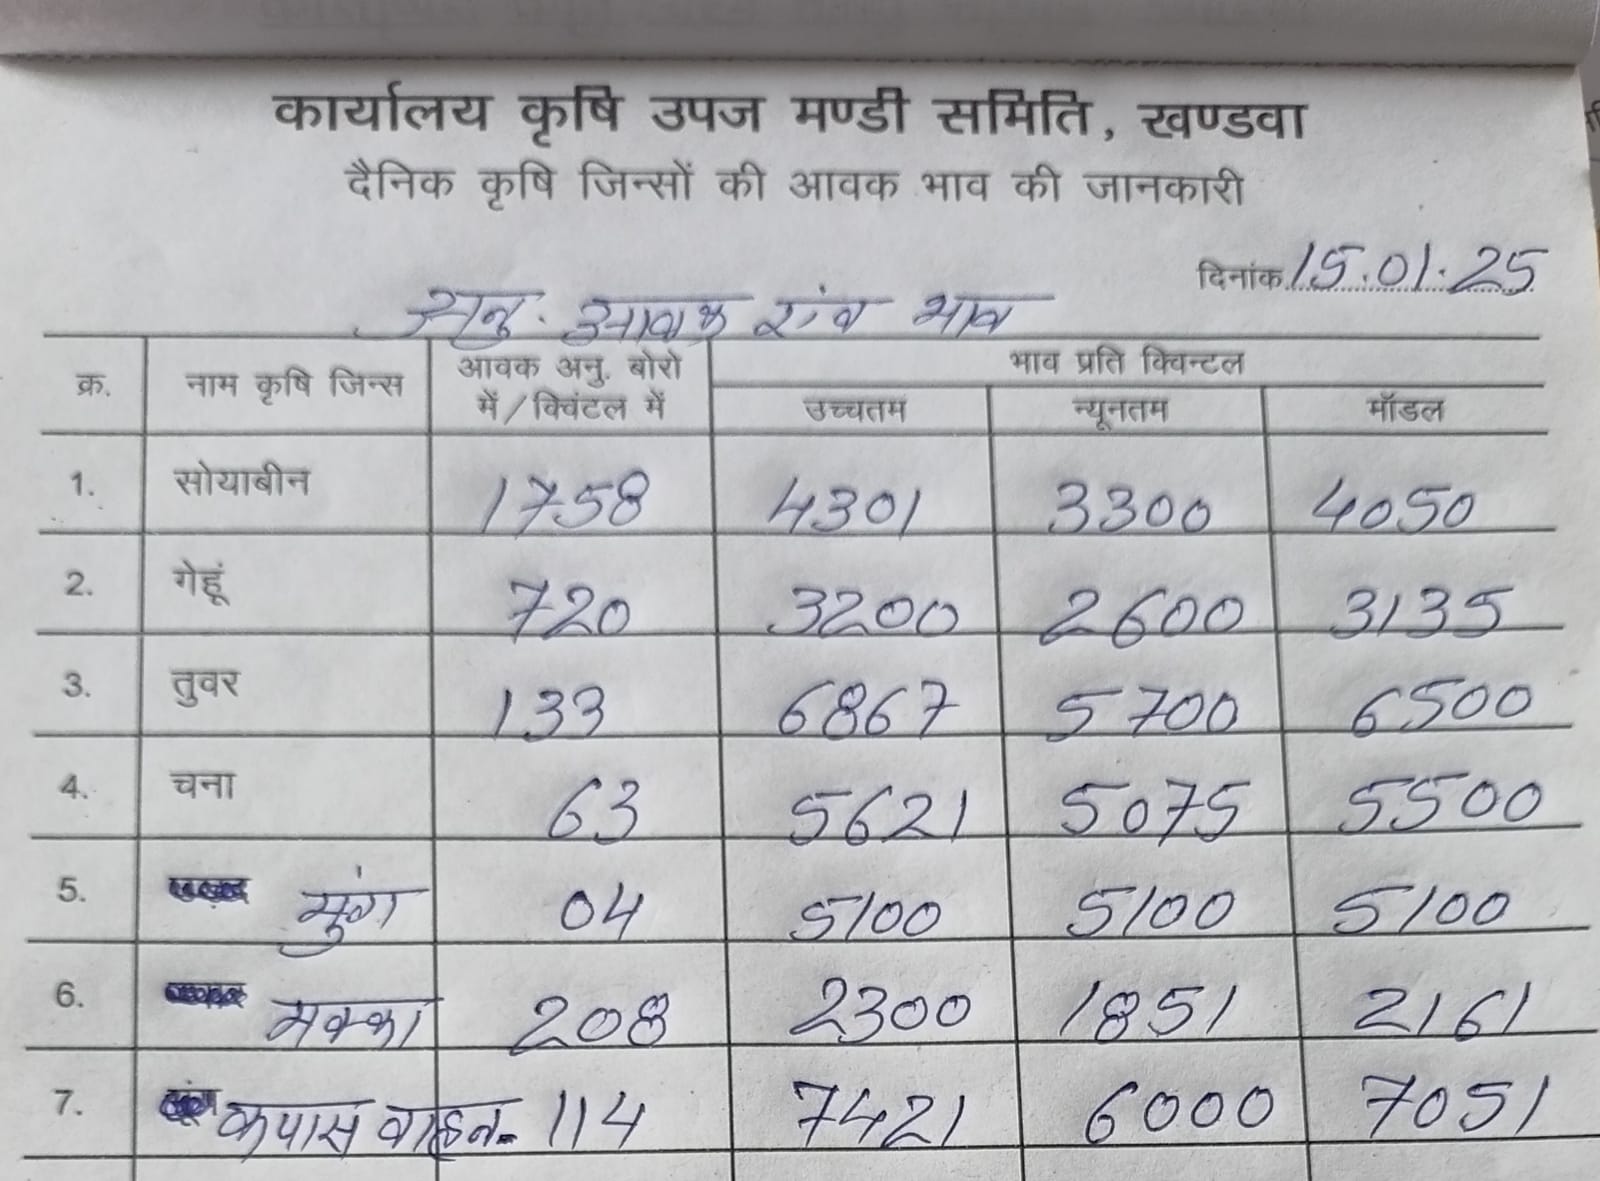 कार्यालय कृषि उपज मण्डी समिति, खण्डवा
दैनिक कृषि जिन्सों की आवक भाव की जानकारी
दिनांक 15.01.25
अनु. आवक एंव भाव
क्र. नाम कृषि जिन्स आवक अनु. बोरो में/क्विंटल में भाव प्रति क्विन्टल
उच्चतम न्यूनतम मॉडल
1. सोयाबीन 1758 4301 3300 4050
2. गेहूं 720 3200 2600 3135
3. तुवर 133 6867 5700 6500
4. चना 63 5621 5075 5500
5. मुंग 04 5100 5100 5100
6. मक्का 208 2300 1851 2161
7. कपास वाहन- 114 7421 6000 7051